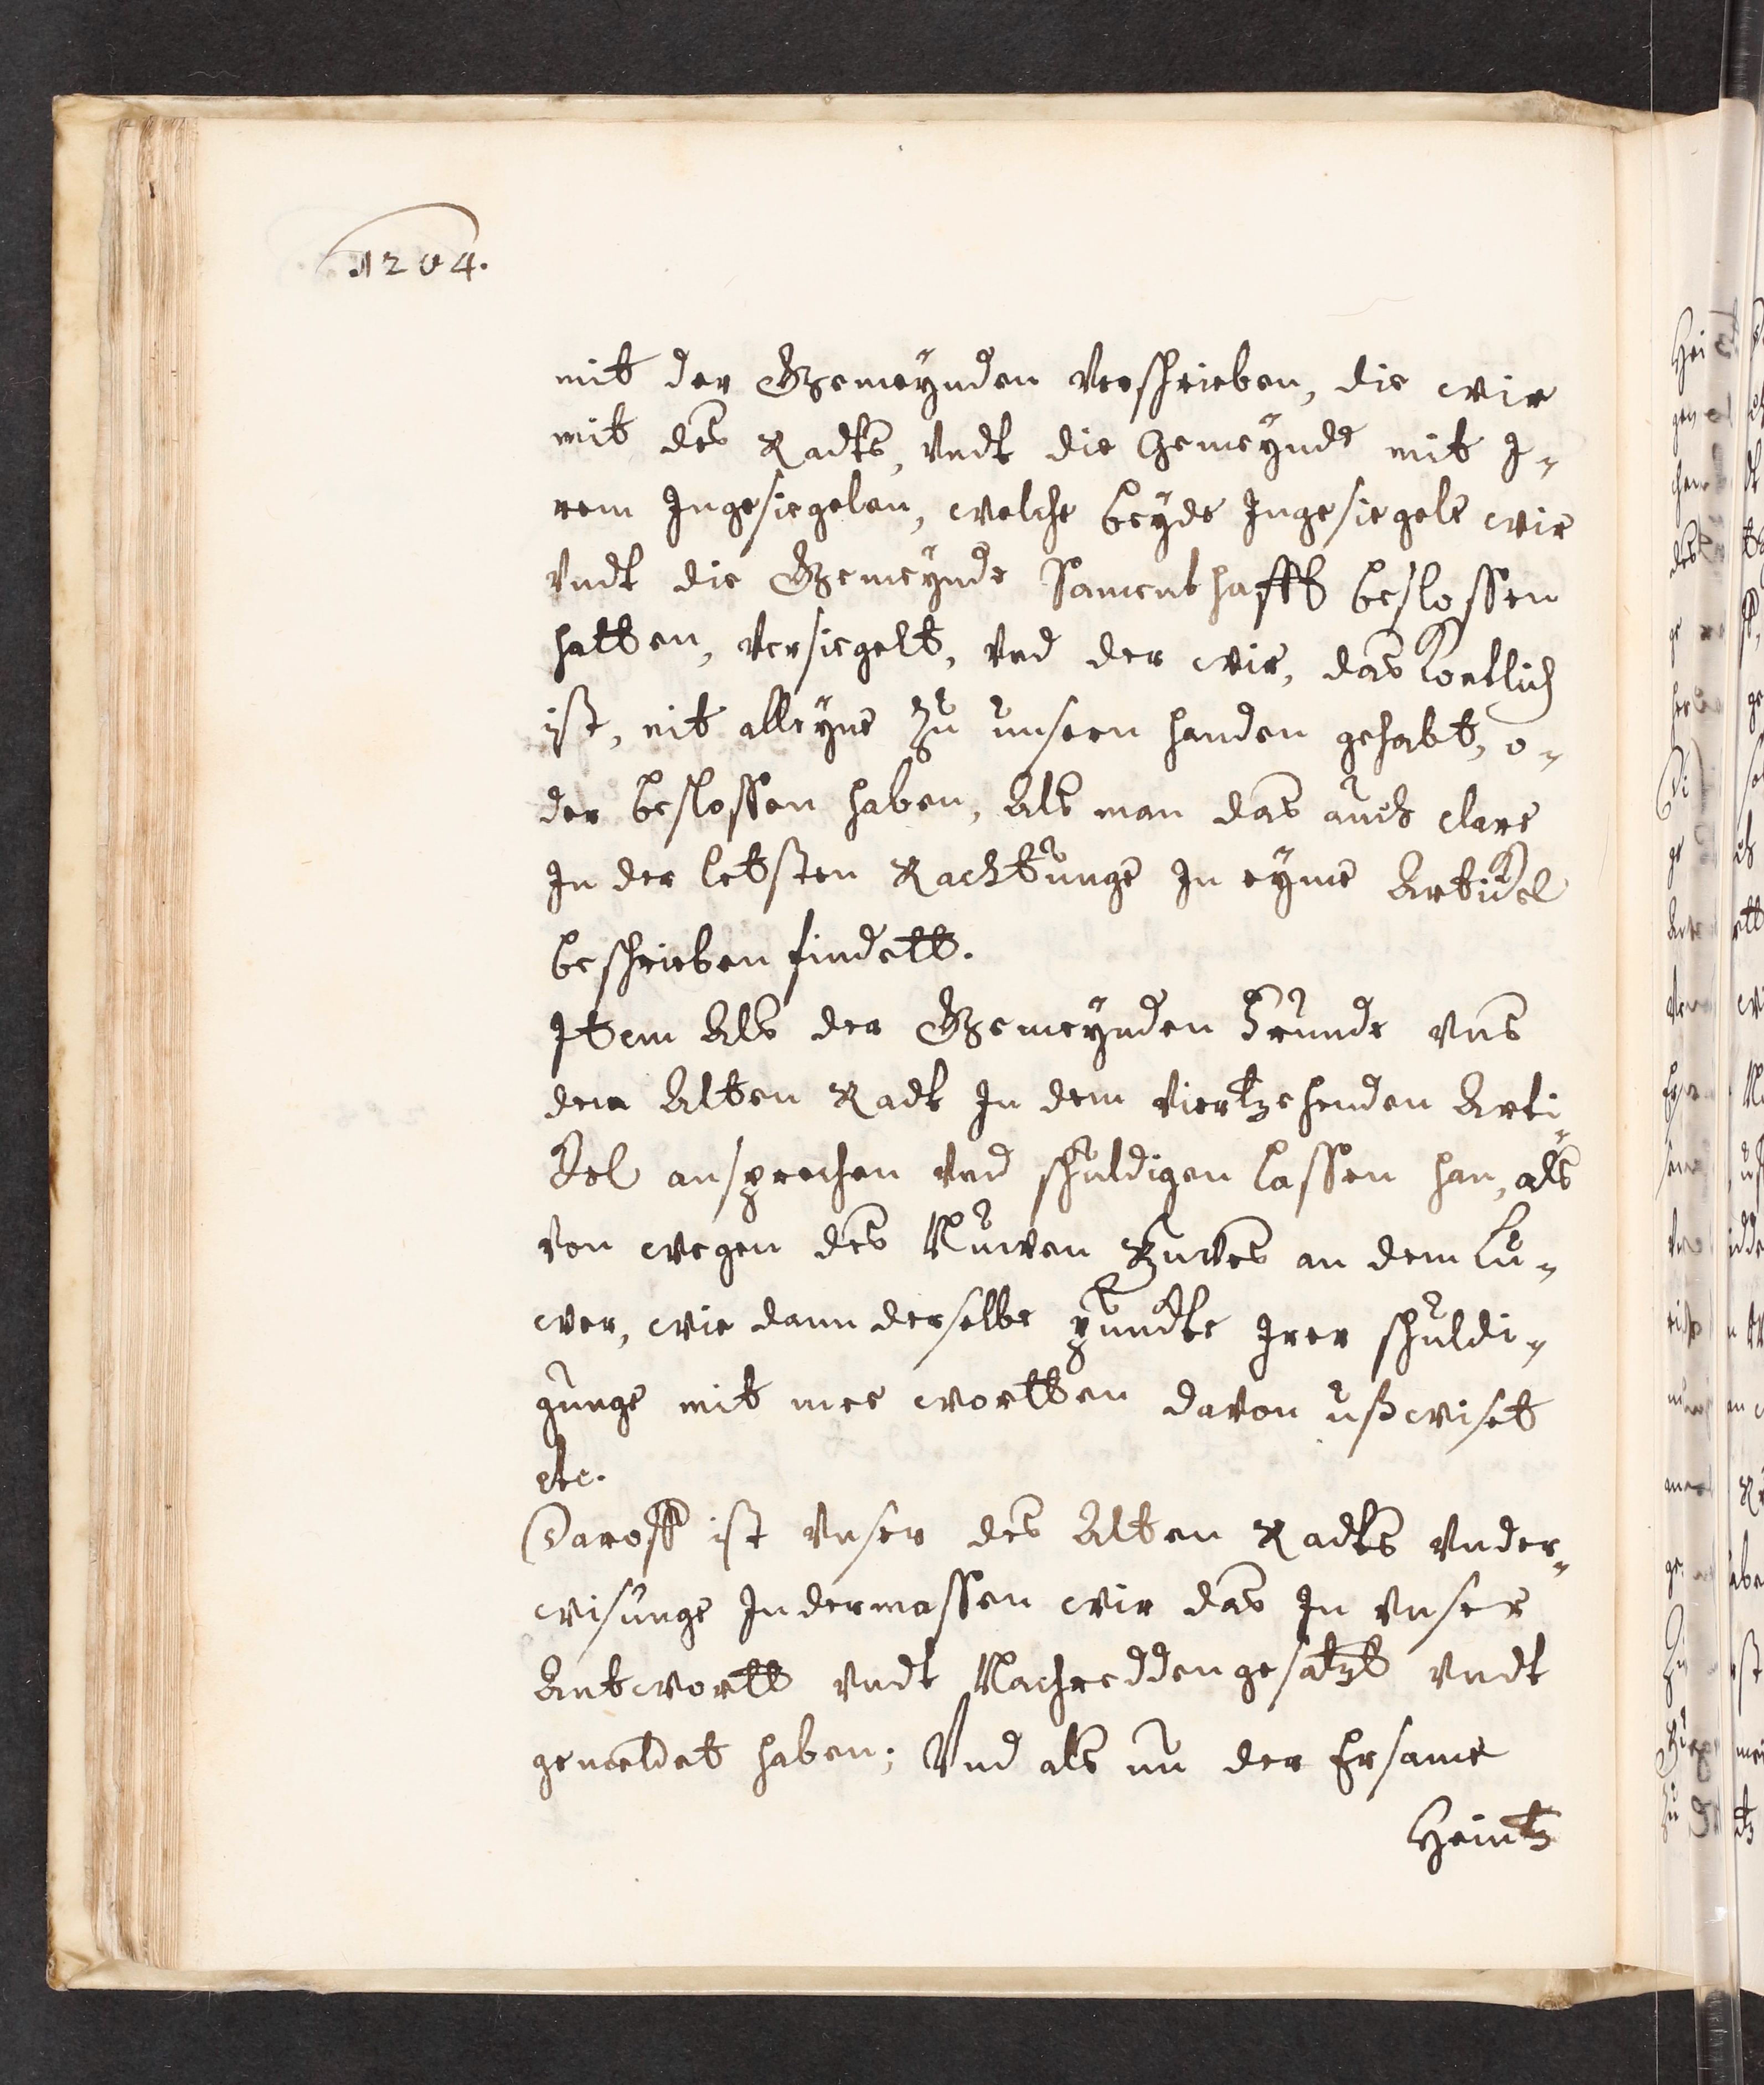 1204.
mit der Gemeynden verschrieben, die wir
mit des Radts, vndt die Gemeynde mit J-
rem Jngesiegelen, welche beyde Jngesiegele wir
vndt die Gemeynde Samenthafft beslossen
hatten, versiegelt, vnd der wir, das kontlich
ist, nit alleyne zu unsern handen gehabt, o-
der beslossen haben, Als man das auch clare
Jn der letsten Rachtunge Jn eyme Artickel
beschrieben findett.
Jtem Als der Gemeynden Frunde vns
dem Alten Radt Jn dem viertzehenden Arti-
kel ansprechen vnd schuldigen lassen han, als
von wegen des Nuwen Buwes an dem Lu-
wer, wie dann derselbe puncte Jrer schuldi-
gunge mit mee wortten davon ußwiset
etc.
Daroff ist vnser des Alten Radts vnder-
wisunge Jndermassen wir das Jn vnser
Antwortt vndt Nachreddengesatzt vndt
gemeldet haben; Vnd als nu der Ersame
Heintz